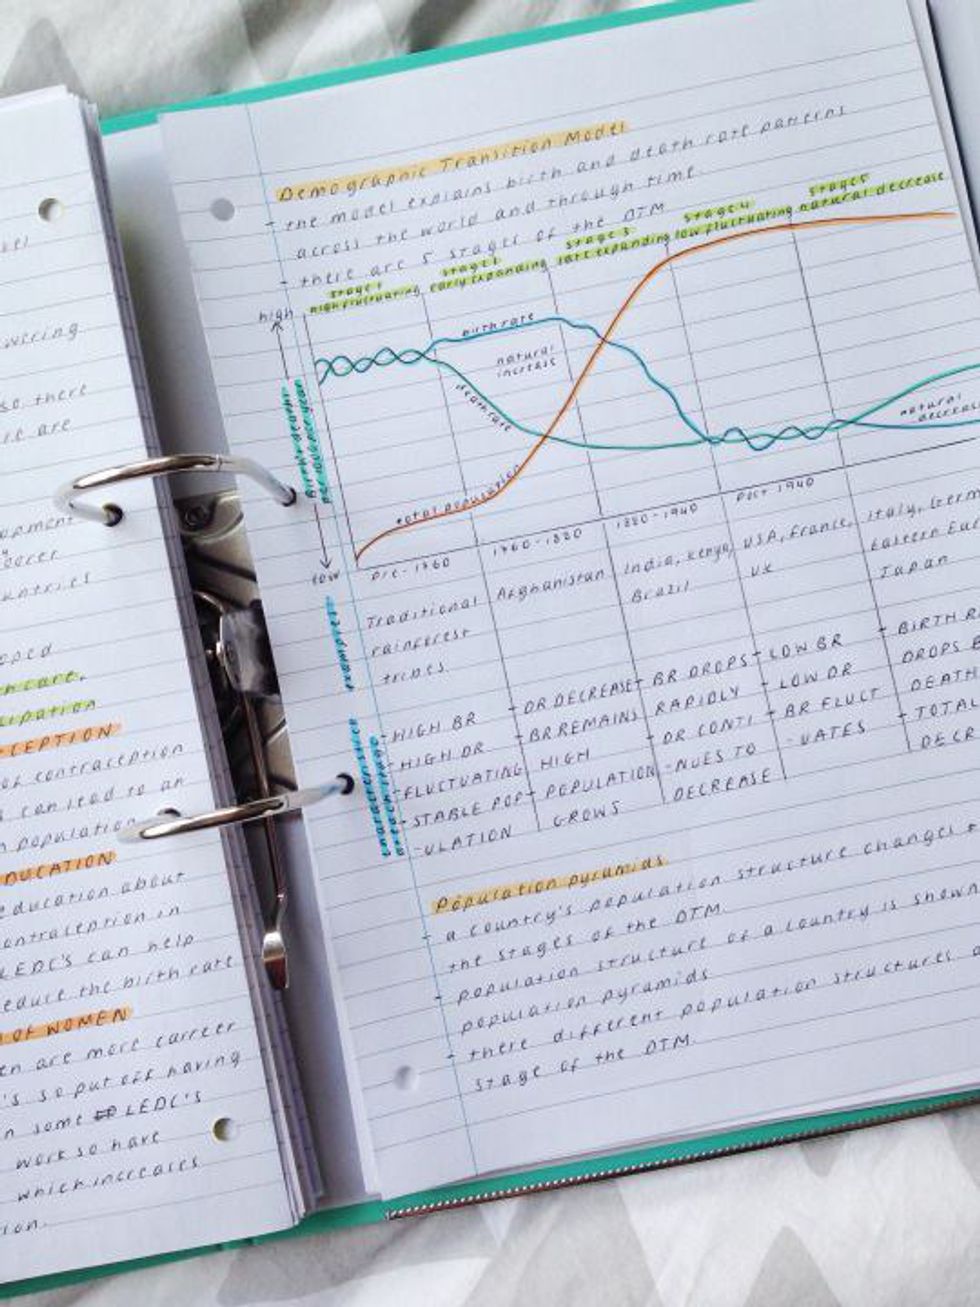 wering
so there
are
opment
poorer
untries
oped
thcare,
cipation
CEPTION
of contraception
can lead to an
population
DUCATION
education about
contraception in
LEDC's can help
reduce the birth rate
OF WOMEN
en are more career
's so put off having
n some LEDC's
work so have
which increases
ion.
Demographic Transition Model
- the model explains birth and death rate patterns
across the world and through time.
- there are 5 stages of the DTM
stage 1
high fluctuating
stage 2
early expanding
stage 3
late expanding
stage 4
low fluctuating
stage 5
natural decrease
high
Births + deaths
per 1000 per year
low
birth rate
natural
increase
death rate
total population
natural
decrease
Pre-1760
1760-1880
1880-1940
Post-1940
examples
Traditional
rainforest
tribes
Afghanistan
India, Kenya,
Brazil
USA, France,
UK
Italy, Germ
Eastern Eur
Japan
characteristics
of each stage
- HIGH BR
- HIGH DR
- FLUCTUATING
- STABLE POP
-ULATION
- DR DECREASE
- BR REMAINS
HIGH
- POPULATION
GROWS
- BR DROPS
RAPIDLY
- DR CONTI
-NUES TO
DECREASE
- LOW BR
- LOW DR
- BR FLUCT
-UATES
- BIRTH R
DROPS B
DEATH
- TOTAL
DECR
Population pyramids
- a country's population structure changes
the stages of the DTM.
- population structure of a country is shown
population pyramids
- there different population structures
stage of the DTM.